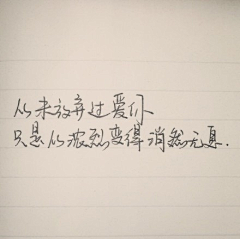 从未放弃过爱你
只是从浓烈变得消然无息.